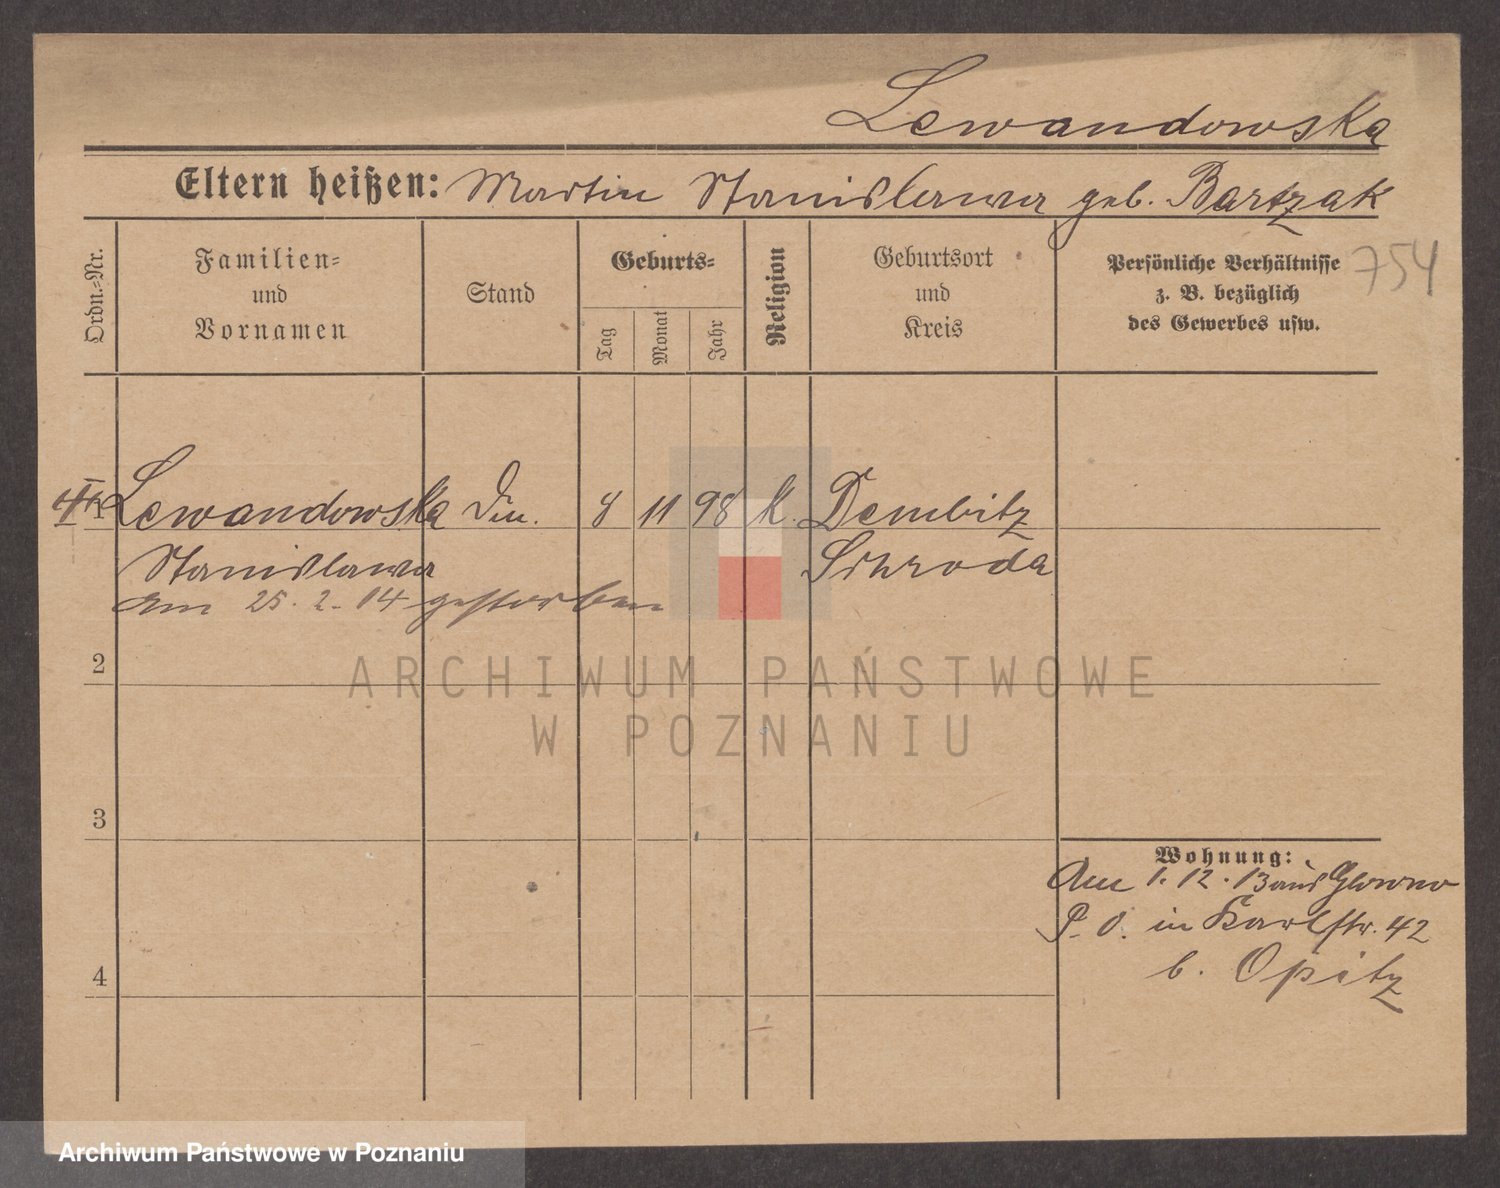 Lewandowska
Eltern heißen: Martin Stanislawa geb. Bartzak
Ordn.-Nr.
Familien-
und
Vornamen
Stand
Geburts-
Tag
Monat
Jahr
Religion
Geburtsort
und
Kreis
Persönliche Verhältnisse
z. B. bezüglich
des Gewerbes usw.
754
1 Lewandowska Din. 8 11 98 k. Dembitz
Stanislawa Schroda
am 25. 2. 14 gestorben
2
ARCHIWUM PAŃSTWOWE
W POZNANIU
3
Wohnung:
Am 1. 12. 13 aus Glowno
P. O. in Karlstr. 42
4
b. Opitz
Archiwum Państwowe w Poznaniu